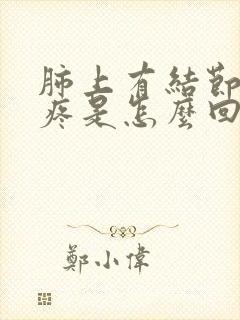 肺上有結節
疼是怎麼回
鄭小偉